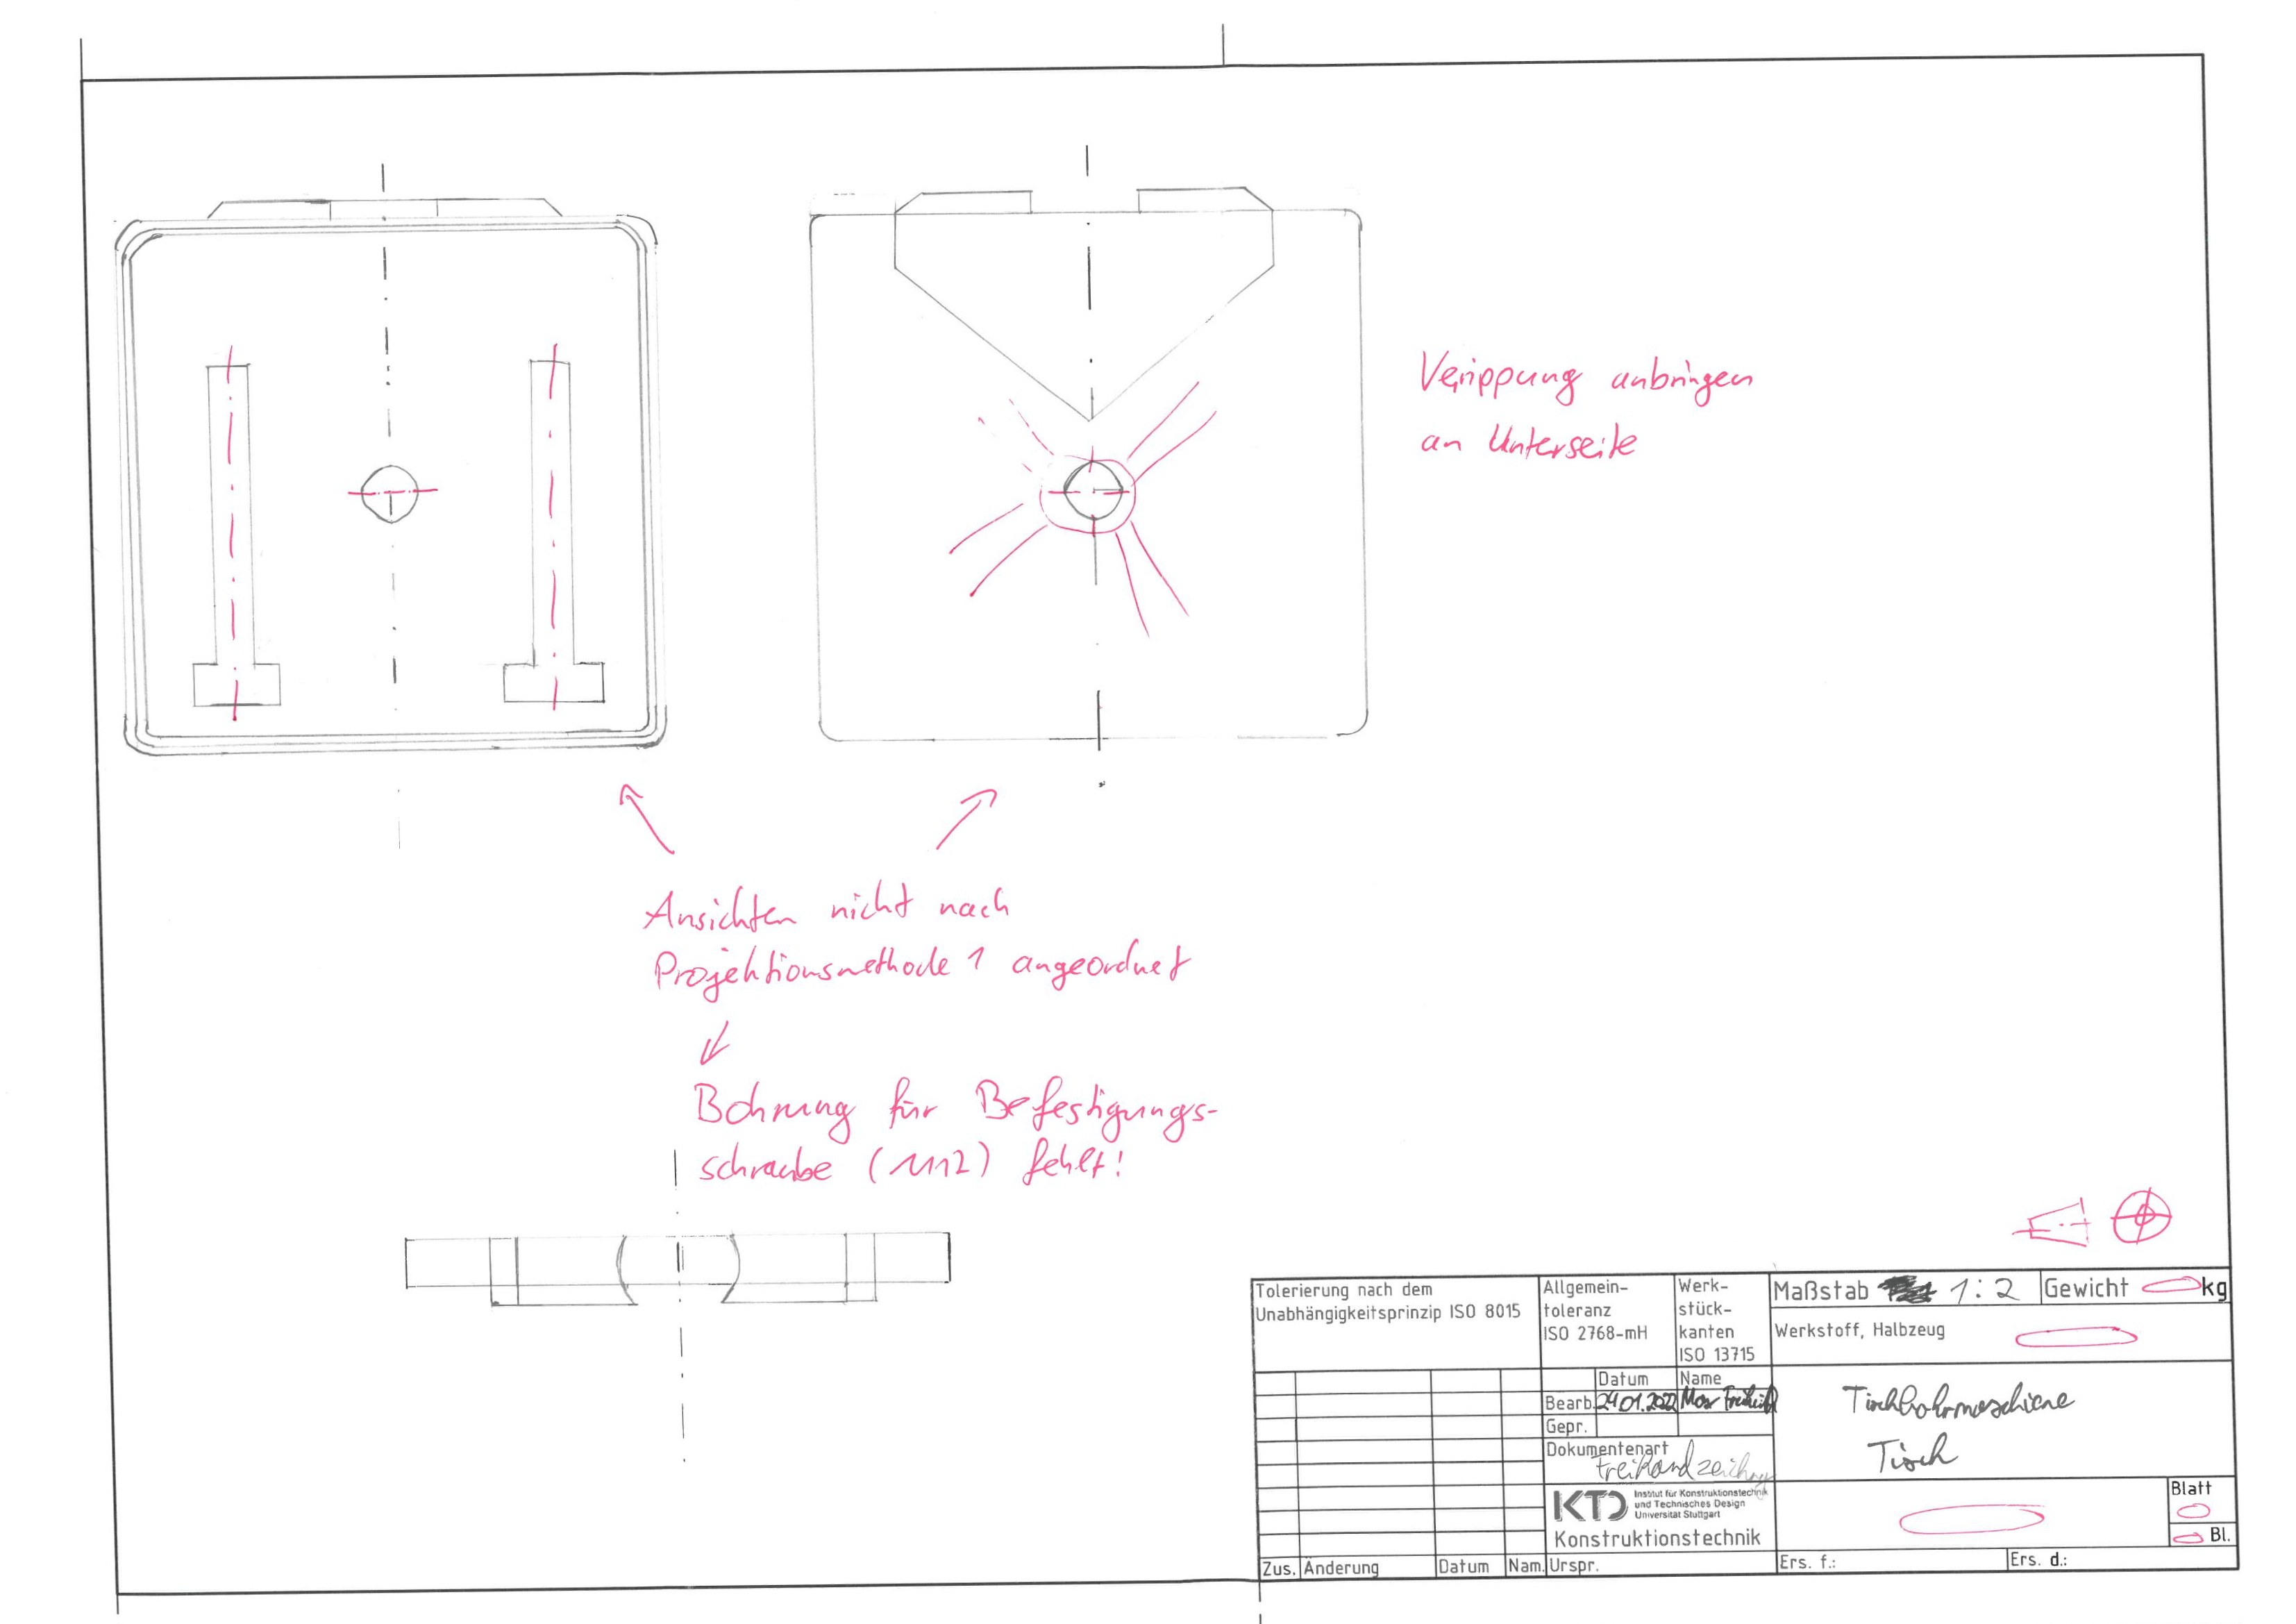 Verrippung anbringen
an Unterseite
Ansichten nicht nach
Projektionsmethode 1 angeordnet
Bohrung für Befestigungs-
schraube (M12) fehlt!
Tolerierung nach dem
Unabhängigkeitsprinzip ISO 8015
Allgemein-
toleranz
ISO 2768-mH
Werk-
stück-
kanten
ISO 13715
Maßstab 1:2
Gewicht kg
Werkstoff, Halbzeug
Datum Name
Bearb. 24.01.2022
Gepr.
Dokumentenart
Freihandzeichnung
Tischbohrmaschiene
Tisch
KTD
Institut für Konstruktionstechnik
und Technisches Design
Universität Stuttgart
Konstruktionstechnik
Blatt
Bl.
Zus. Änderung Datum Nam. Urspr.
Ers. f.:
Ers. d.: